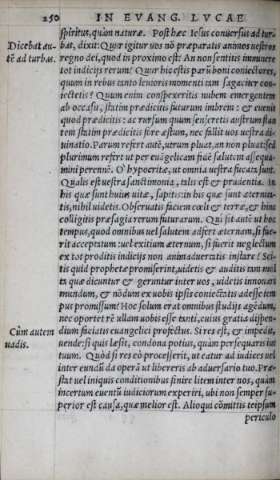 250 IN EVANG. LVCAE
spiritus, quàm naturæ. Post hæc Iesus conuersus ad turbas,
Dicebat autē ad turbas.
dixit: Quor igitur uos nō præparatis animos uestros
regno dei, quod in proximo est? An non sentitis innuere
tot indicijs rerum? Quor hic estis parū boni coniectores,
quum in rebus tanto leuioris momenti tam sagaciter conijectetis?
Quum enim conspexeritis nubem emergentem
ab occasu, statim prædicitis futurum imbrem: & euenit
quod prædicitis: ac rursum quum senseritis austrum flantem
statim prædicitis fore æstum, nec fallit uos uestra diuinatio.
Parum refert autē, utrum pluat, an non pluat: sed
plurimum refert ut per euāgelicam fidē salutem assequamini
perennē. O hypocritæ, ut omnia uestra fucata sunt.
Qualis est uestra sanctimonia, talis est & prudentia. In
his quæ sunt huius uitæ, sapitis: in his quæ sunt æternitatis,
nihil uidetis. Obseruatis faciem cœli & terræ, & hinc
colligitis præsagia rerum futurarum. Qui fit autē ut hoc
tempus, quod omnibus uel salutem adfert æternam, si fuerit
acceptum: uel exitium æternum, si fuerit neglectum
ex tot proditis indicijs non animaduertatis instare? Scitis
quid prophetæ promiserint, uidetis & auditis tam multa
quæ dicuntur & geruntur inter uos, uidetis innouari
mundum, & nōdum ex uobis ipsis coniectatis adesse tempus
promissum? Hoc solum erat omnibus studijs agēdum,
nec oportet rē ullam uobis esse tanti, cuius gratia dispendium
Cùm autem uadis.
faciatis euangelici profectus. Si res est, & impediæ,
uende: si quis læsit, condona potius, quàm persequaris ius
tuum. Quòd si res eò processerit, ut eatur ad iudices uel
inter eundū da operā ut libereris ab aduersario tuo. Præstat
uel iniquis conditionibus finire litem inter nos, quàm
incertum euentū iudiciorum experiri, ubi non semper superior
est causa, quæ melior est. Alioqui cōmittis teipsum
periculo